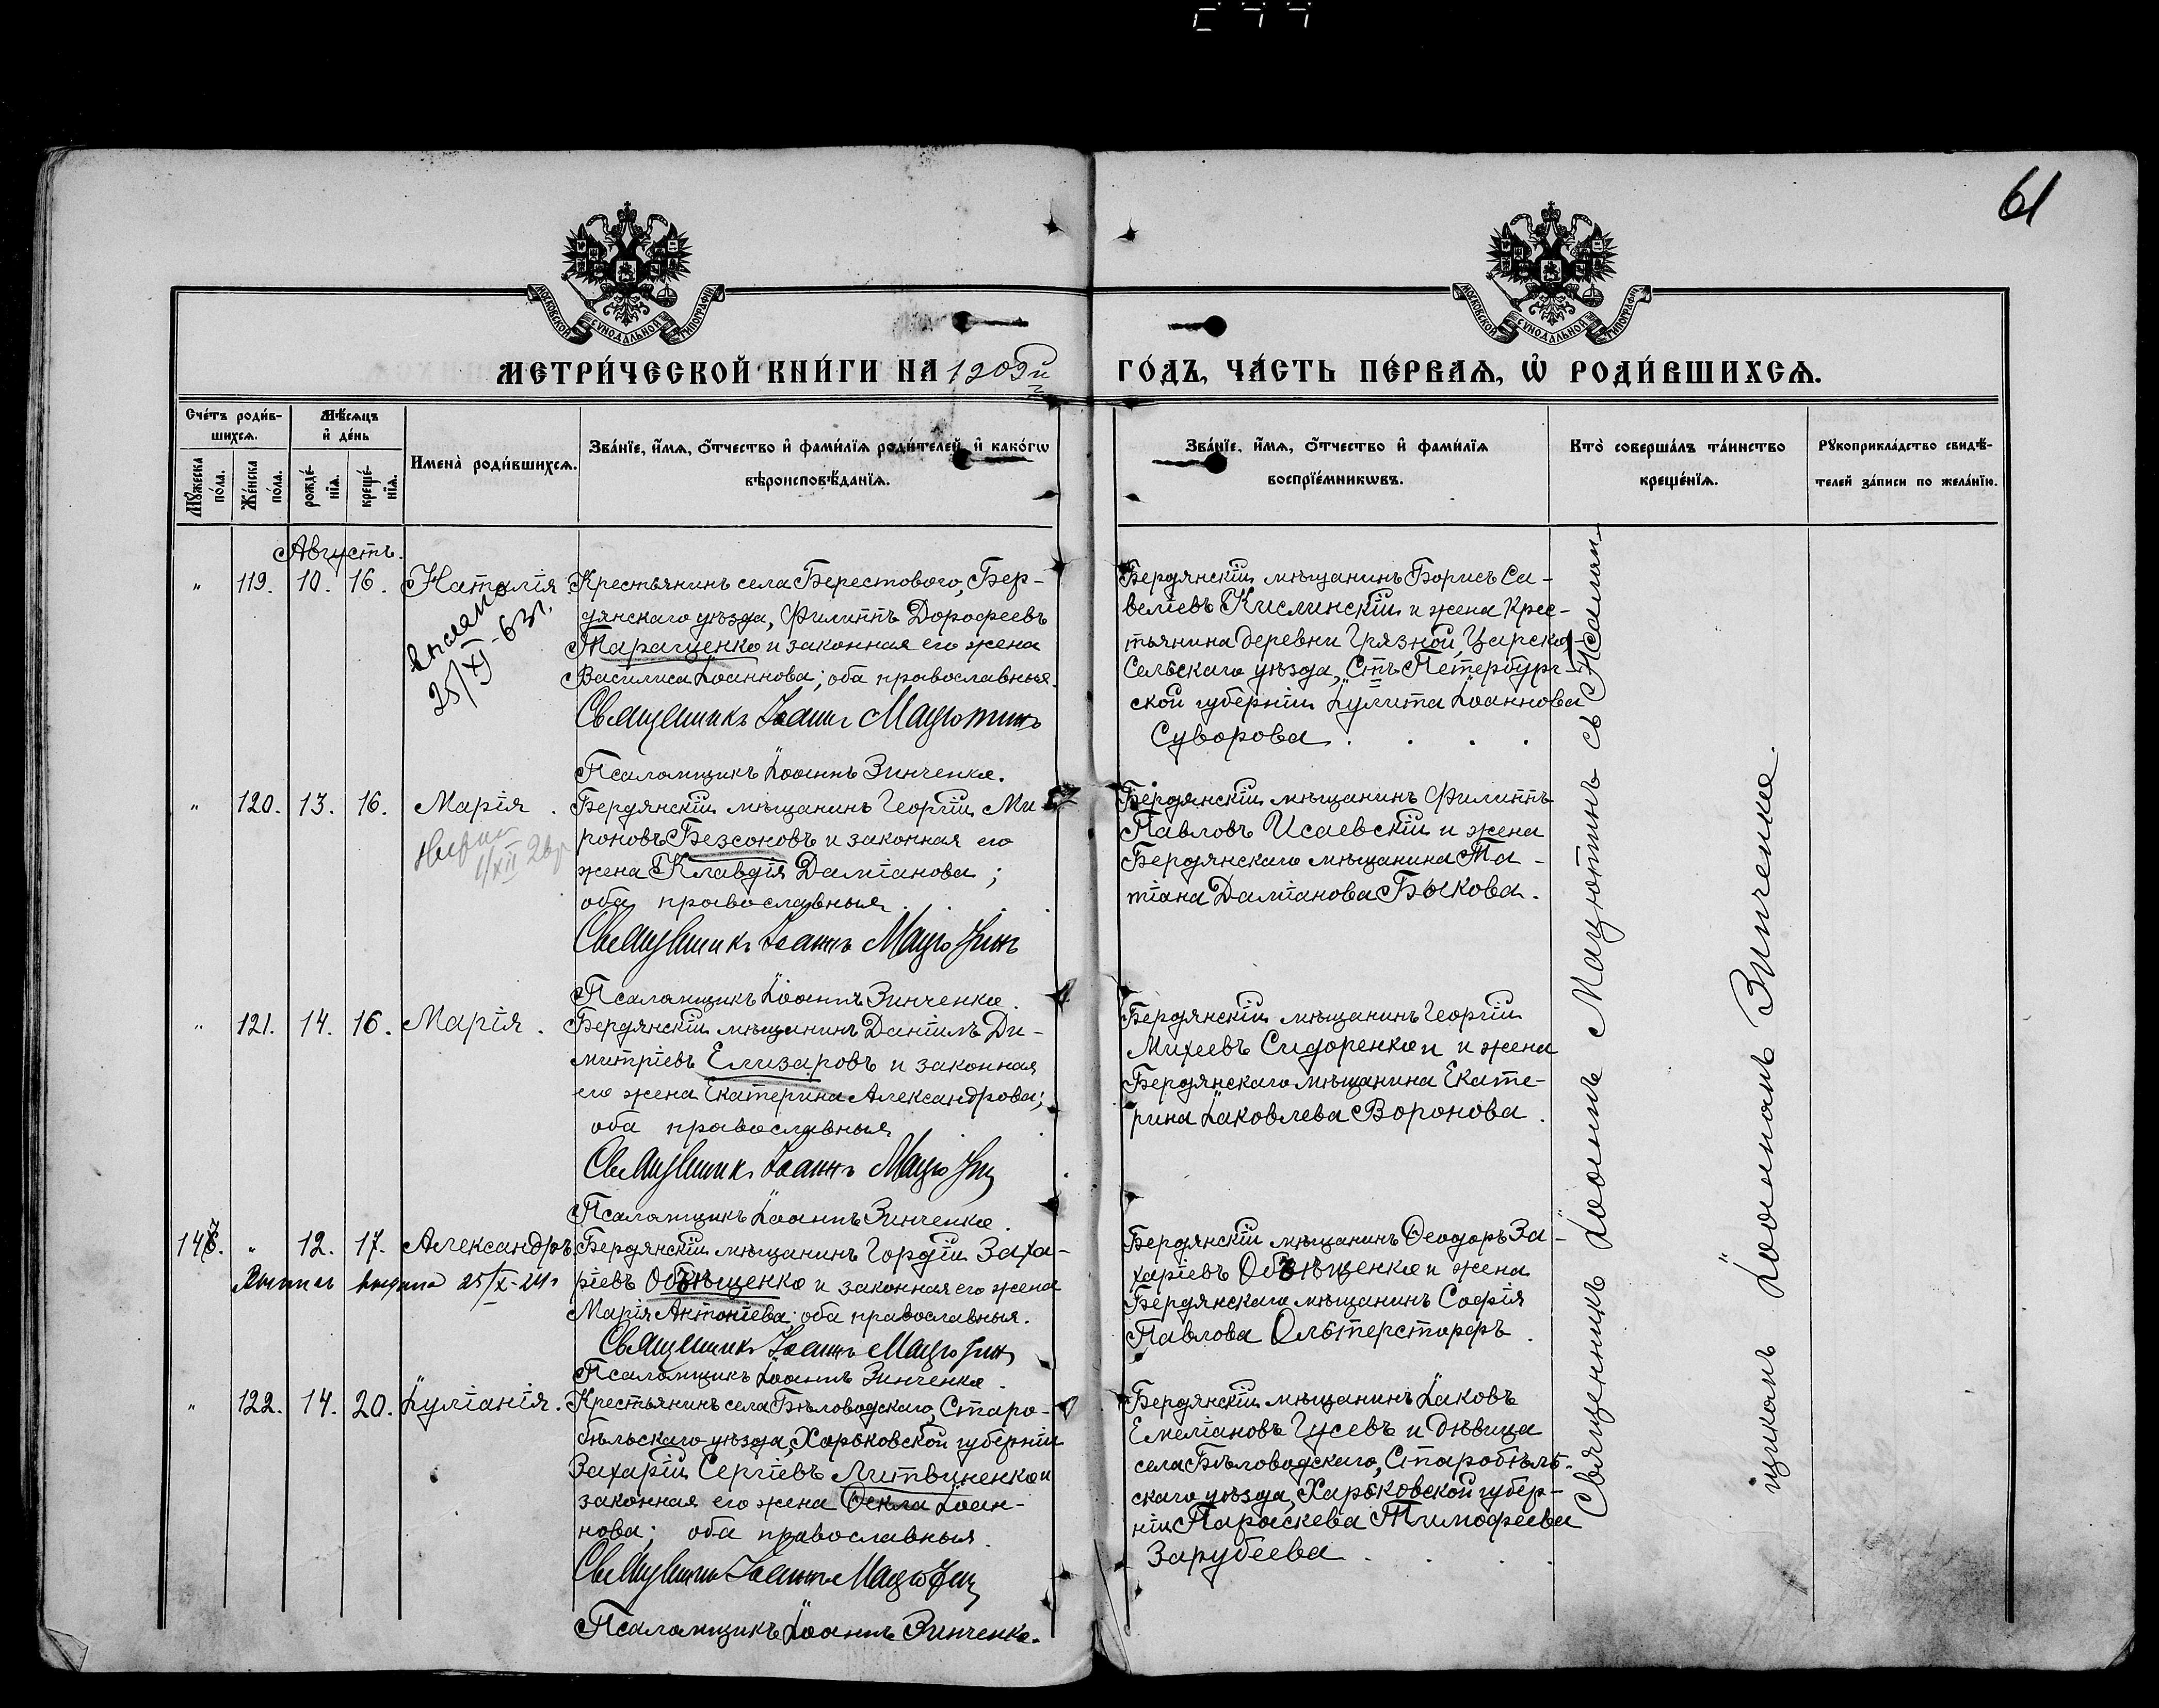 61
МОСКОВСКОЙ СѴНОДАЛЬНОЙ ТИПОГРАФІИ
МОСКОВСКОЙ СѴНОДАЛЬНОЙ ТИПОГРАФІИ
МЕТРИ́ЧЕСКОЙ КНИ́ГИ НА 1909й
ГО́ДЪ, ЧА́СТЬ ПЕ́РВАѦ, Ѡ҆ РОДИ́ВШИХСѦ.
Сче́тъ роди́в-
шихсѧ.
Мѣ́сѧцъ
и҆ де́нь
Мꙋ́жеска
по́ла.
Же́нска
по́ла.
рожде́-
нїѧ.
креще́-
нїѧ.
Имена̀ роди́вшихсѧ.
Зва́нїе, и҆́мѧ, ѻ҆́тчество и҆ фами́лїѧ роди́телей, и҆ како́гѡ
вѣроисповѣ́данїѧ.
Зва́нїе, и҆́мѧ, ѻ҆́тчество и҆ фами́лїѧ
воспрїе́мникѡвъ.
Кто̀ соверша́лъ та́инство
креще́нїѧ.
Рꙋкоприкла́дство свидѣ́-
телей за́писи по жела́нїю.
Августъ.
" 119. 10. 16. Наталія
выслано
25/XI-63г.
Крестьянинъ села Берестового, Бер-
дянскаго уѣзда, Филиппъ Дорофеевъ
Таращенко и законная его жена
Василиса Іоаннова; оба православные.
Священникъ Іоаннъ Мацютинъ
Псаломщикъ Іоаннъ Зинченко.
Бердянскій мѣщанинъ Борисъ Са-
веліевъ Кислинскій и жена Крес-
тьянина деревни Грязной, Царско-
Сельскаго уѣзда, Стъ Петербург-
ской губерніи Іулита Іоаннова
Суворова.
" 120. 13. 16. Марія.
1/XII 26г
Бердянскій мѣщанинъ Георгій Ми-
роновъ Безсоновъ и законная его
жена Клавдія Даміанова;
оба православныя.
Священникъ Іоаннъ Мацютинъ
Псаломщикъ Іоаннъ Зинченко.
Бердянскій мѣщанинъ Филиппъ
Павловъ Исаевскій и жена
Бердянскаго мѣщанина Та-
тіана Даміанова Быкова.
" 121. 14. 16. Марія.
Бердянскій мѣщанинъ Даніилъ Ди-
митріевъ Елизаровъ и законная
его жена Екатерина Александрова;
оба православныя
Священникъ Іоаннъ Мацютинъ
Псаломщикъ Іоаннъ Зинченко.
Бердянскій мѣщанинъ Георгій
Михеевъ Сидоренко и и жена
Бердянскаго мѣщанина Екате-
рина Іаковлева Воронова.
147. " 12. 17. Александръ.
выдана 25/X-24г
Бердянскій мѣщанинъ Гордій Заха-
ріевъ Объѣщенко и законная его жена
Марія Антоніева; оба православныя.
Священникъ Іоаннъ Мацютинъ
Псаломщикъ Іоаннъ Зинченко.
Бердянскій мѣщанинъ Ѳеодоръ За-
харіевъ Объѣщенко и жена
Бердянскаго мѣщанинъ Софія
Павлова Ольтерсторфъ.
" 122. 14. 20. Іуліанія.
Крестьянинъ села Бѣловодскаго, Старо-
бѣльскаго уѣзда, Харьковской губерніи
Захарій Сергіевъ Литвиненко и
законная его жена Ѳекла Іоан-
нова; оба православныя.
Священникъ Іоаннъ Мацютинъ
Псаломщикъ Іоаннъ Зинченко.
Бердянскій мѣщанинъ Іаковъ
Емеліановъ Гусевъ и дѣвица
села Бѣловодскаго, Старобѣль-
скаго уѣзда, Харьковской губер-
ніи Параскева Тимофеева
Зарубеева.
Священникъ Іоаннъ Мацютинъ съ Псалом-
щикомъ Іоанномъ Зинченко.